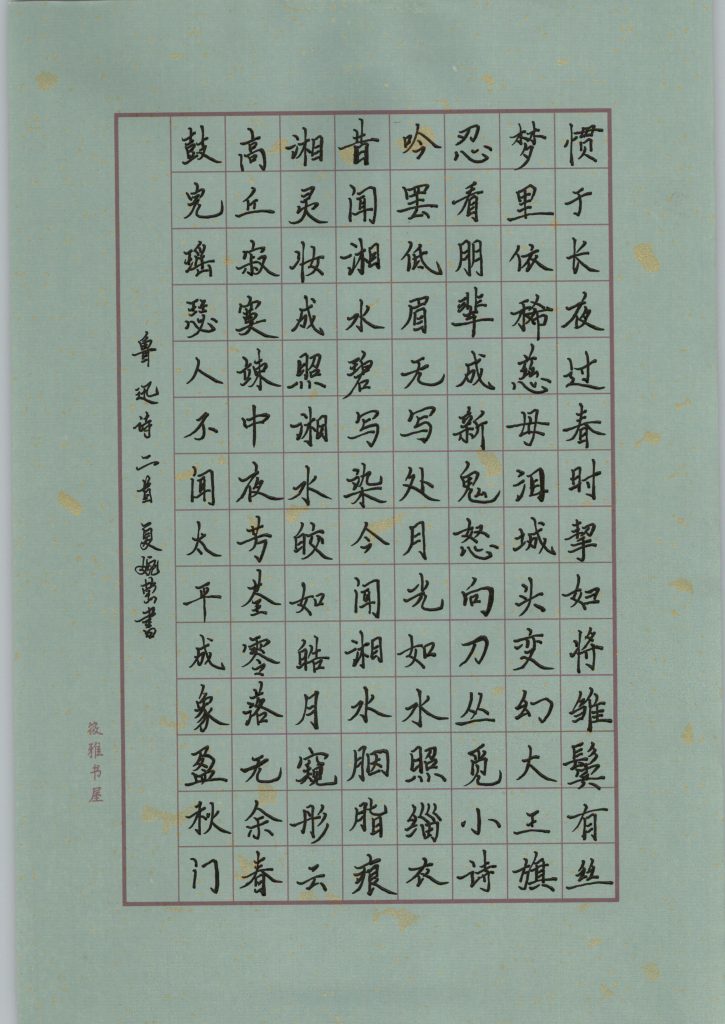 惯于长夜过春时挈妇将雏鬓有丝
梦里依稀慈母泪城头变幻大王旗
忍看朋辈成新鬼怒向刀丛觅小诗
吟罢低眉无写处月光如水照缁衣
昔闻湘水碧写染今闻湘水胭脂痕
湘灵妆成照湘水皎如皓月窥彤云
高丘寂寞竦中夜芳荃零落无余春
鼓完瑶瑟人不闻太平成象盈秋门
鲁迅诗二首 夏婉莹書
筱雅书屋